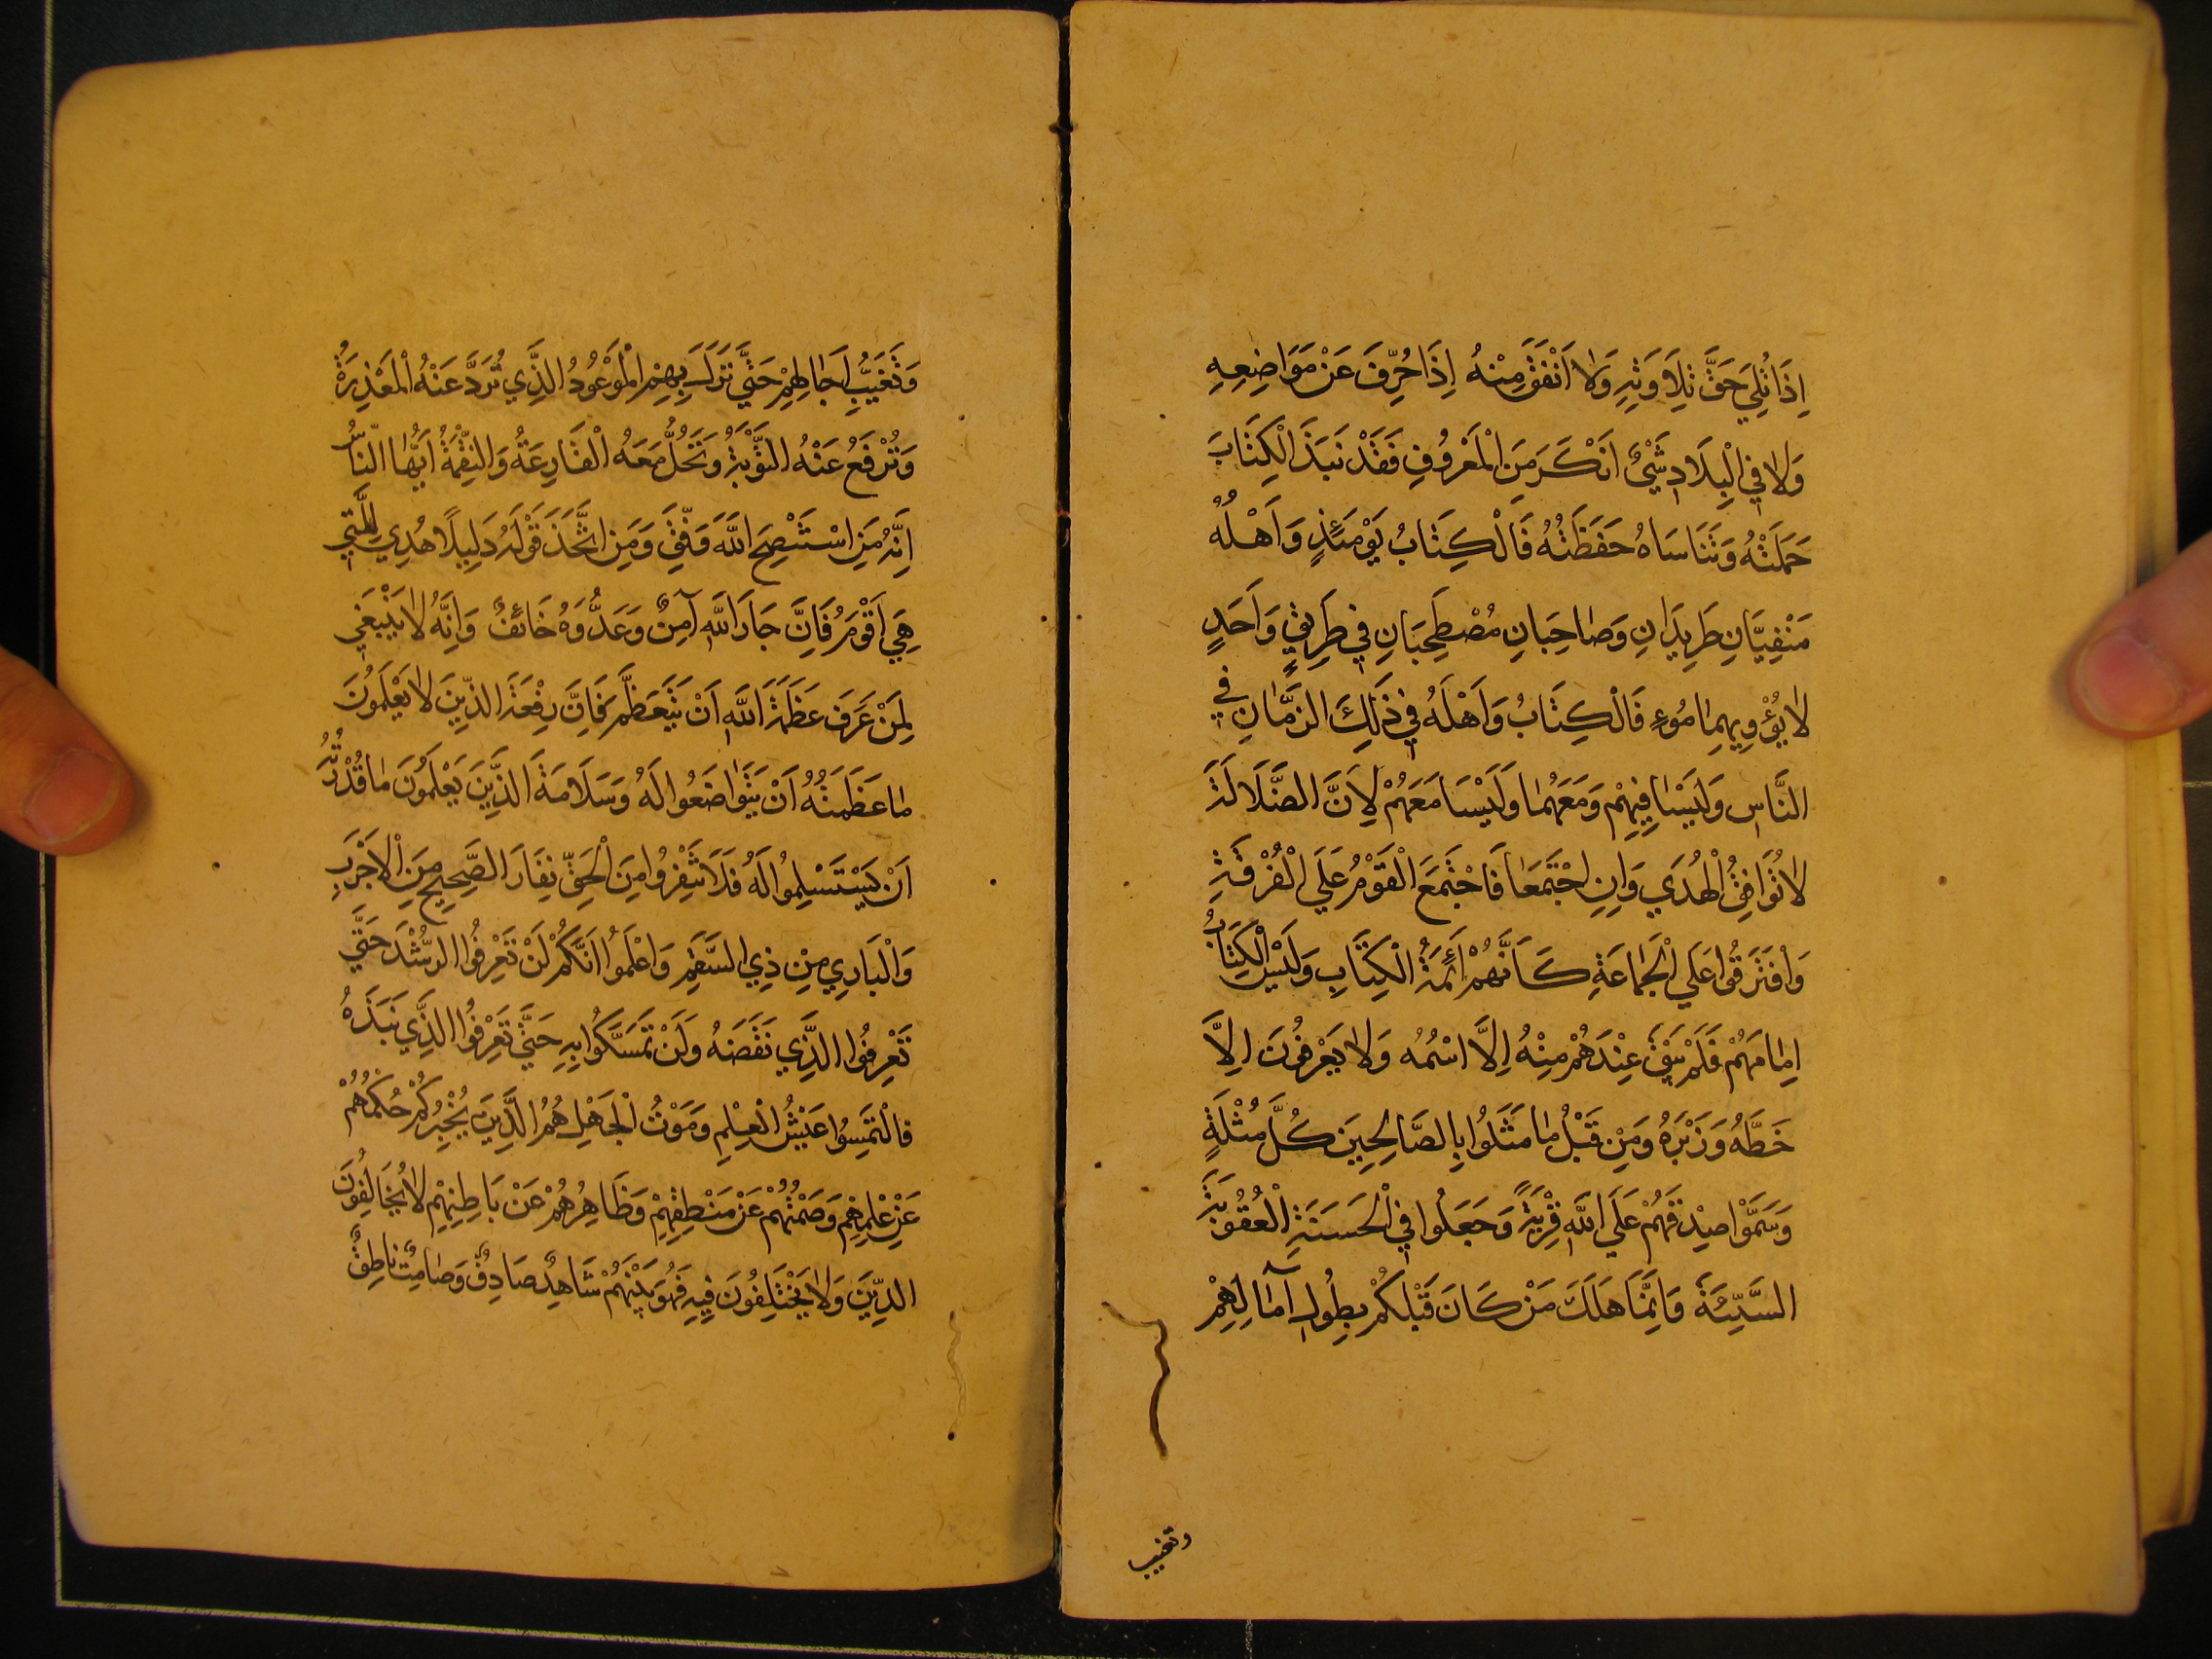 اِذَا تُلِيَ حَقَّ تِلَاوَتِهِ وَلَا اَنْفَقَ مِنْهُ اِذَا حُرِّفَ عَنْ مَوَاضِعِهِ
وَلَا فِي الْبِلَادِ شَيْءٌ اَنْكَرَ مِنَ الْمَعْرُوفِ فَقَدْ نَبَذَ الْكِتَابَ
حَمَلَتُهُ وَتَنَاسَاهُ حَفَظَتُهُ فَالْكِتَابُ يَوْمَئِذٍ وَاَهْلُهُ
مَنْفِيَّانِ طَرِيدَانِ وَصَاحِبَانِ مُصْطَحِبَانِ فِي طَرِيقٍ وَاحَدٍ
لَا يُؤْوِيهِمَا مُوءٍ فَالْكِتَابُ وَاَهْلُهُ فِي ذَلِكَ الزَّمَانِ فِي
النَّاسِ وَلَيْسَا فِيهِمْ وَمَعَهُمَا وَلَيْسَا مَعَهُمْ لِاَنَّ الضَّلَالَةَ
لَا تُوَافِقُ الْهُدَي وَاِنِ اجْتَمَعَا فَاجْتَمَعَ الْقَوْمُ عَلَي الْفُرْقَةِ
وَافْتَرَقُوا عَلَي الْجَمَاعَةِ كَاَنَّهُمْ اَئِمَّةُ الْكِتَابِ وَلَيْسَ الْكِتَابُ
اِمَامَهُمْ فَلَمْ يَبْقَ عِنْدَهُمْ مِنْهُ اِلَّا اسْمُهُ وَلَا يَعْرِفُونَ اِلَّا
خَطَّهُ وَزَبْرَهُ وَمِنْ قَبْلُ مَا مَثَّلُوا بِالصَّالِحِينَ كُلَّ مُثْلَةٍ
وَسَمَّوْا صِدْقَهُمْ عَلَي اللَّهِ فِرْيَةً وَجَعَلُوا فِي الْحَسَنَةِ الْعُقُوبَةَ
السَّيِّئَةَ وَاِنَّمَا هَلَكَ مَنْ كَانَ قَبْلَكُمْ بِطُولِ آمَالِهِمْ
وتغيب
وَتَغَيُّبِ اجَالِهِمْ حَتَّي نَزَلَ بِهِمُ الْمَوْعُودُ الَّذِي تُرَدُّ عَنْهُ الْمَعْذِرَةُ
وَتُرْفَعُ عَنْهُ التَّوْبَةُ وَتَحُلُّ مَعَهُ الْقَارِعَةُ وَالنِّقْمَةُ اَيُّهَا النَّاسُ
اِنَّهُ مَنِ اسْتَنْصَحَ اللَّهَ وَفِّقَ وَمَنِ اتَّخَذَ قَوْلَهُ دَلِيلًا هُدِي لِلَّتِي
هِيَ اَقْوَمُ فَاِنَّ جَارَ اللَّهِ آمِنٌ وَعَدُّوَهُ خَائِفٌ وَاِنَّهُ لَا يَنْبَغِي
لِمَنْ عَرَفَ عَظَمَةَ اللَّهِ اَنْ يَتَعَظَّمَ فَاِنَّ رِفْعَةَ الذِّينَ لَا يَعْلَمُونَ
مَا عَظَمَتُهُ اَنْ يَتَوَاضَعُوا لَهُ وَسَلَامَةَ الَّذِينَ يَعْلَمُونَ مَا قُدْرَتُهُ
اَنْ يَسْتَسْلِمُوا لَهُ فَلَا تَنْفِرُوا مِنَ الْحَقِّ نِفَارَ الصَّحِيحِ مِنَ الْاَجْرَبِ
وَالْبَارِي مِنْ ذِي السَّقَمِ وَاعْلَمُوا اَنَّكُمْ لَنْ تَعْرِفُوا الرُّشْدَ حَتَّي
تَعْرِفُوا الَّذِي نَقَضَهُ وَلَنْ تَمَسَّكُوا بِهِ حَتَّي تَعْرِفُوا الَّذِي نَبَذَهُ
فَالْتَمِسُوا عَيْشُ الْعِلْمِ وَمَوْتُ الْجَهْلِ هُمُ الَّذِينَ يُخْبِرُكُمْ حُكْمُهُمْ
عَنْ عِلْمِهِمْ وَصَمْتُهُمْ عَنْ مَنْطِقِهِمْ وَظَاهِرُهُمْ عَنْ بَاطِنِهِمْ لَا يُخَالِفُونَ
الدِّينَ وَلَا يَخْتَلِفُونَ فِيهِ فَهُوَ بَيْنَهُمْ شَاهِدٌ صَادِقٌ وَصَامِتٌ نَاطِقٌ